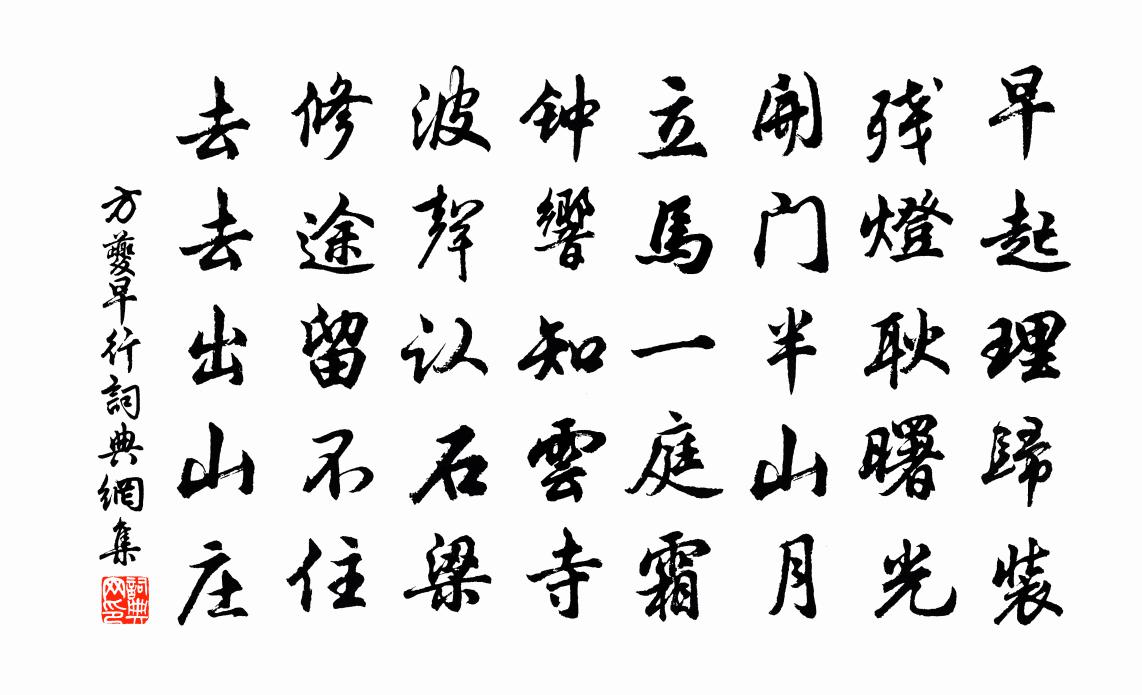 早起理歸裝
残燈耿曙光
開门半山月
立馬一庭霜
钟響知雲寺
波聲认石梁
修途留不住
去去出山庄
方夔早行詞典網集
詞典网印